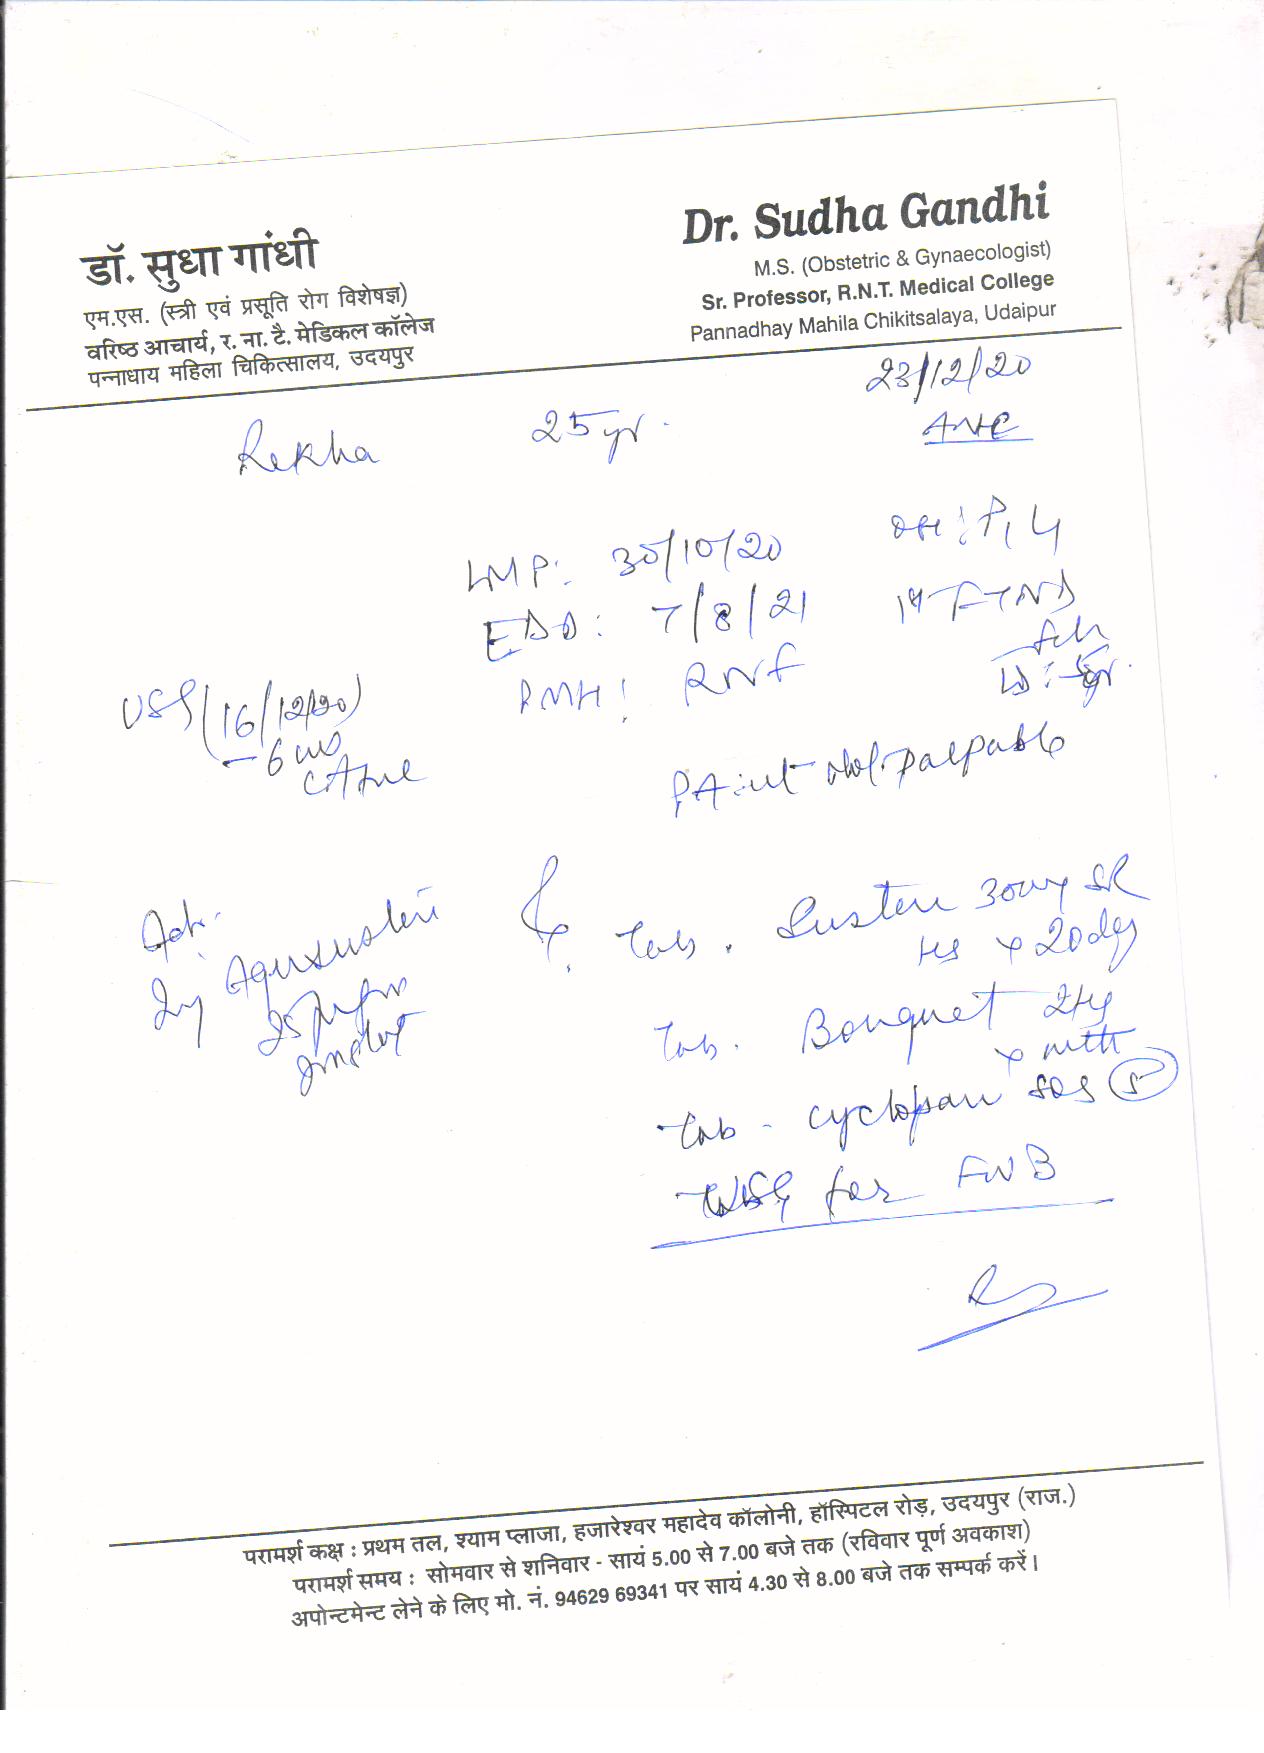 डॉ. सुधा गांधी
एम.एस. (स्त्री एवं प्रसूति रोग विशेषज्ञ)
वरिष्ठ आचार्य, र. ना. टै. मेडिकल कॉलेज
पन्नाधाय महिला चिकित्सालय, उदयपुर
Dr. Sudha Gandhi
M.S. (Obstetric & Gynaecologist)
Sr. Professor, R.N.T. Medical College
Pannadhay Mahila Chikitsalaya, Udaipur
23/12/20
Rekha 25 yr.
ANC
LMP: 30/10/20
OH: P1L1
EDD: 7/8/21
1st FTND
PMH: RNF
USG (16/12/20)
- 6 wks
PA: ut not palpable
Adv.
Inj Aqususten
Tab. Susten 300mg SR
HS x 20 days
Tab. Bouquet
x mth
Tab - cyclopan SOS (5)
USG for FWB
परामर्श कक्ष : प्रथम तल, श्याम प्लाजा, हजारेश्वर महादेव कॉलोनी, हॉस्पिटल रोड़, उदयपुर (राज.)
परामर्श समय : सोमवार से शनिवार - सायं 5.00 से 7.00 बजे तक (रविवार पूर्ण अवकाश)
अपोन्टमेन्ट लेने के लिए मो. नं. 94629 69341 पर सायं 4.30 से 8.00 बजे तक सम्पर्क करें।